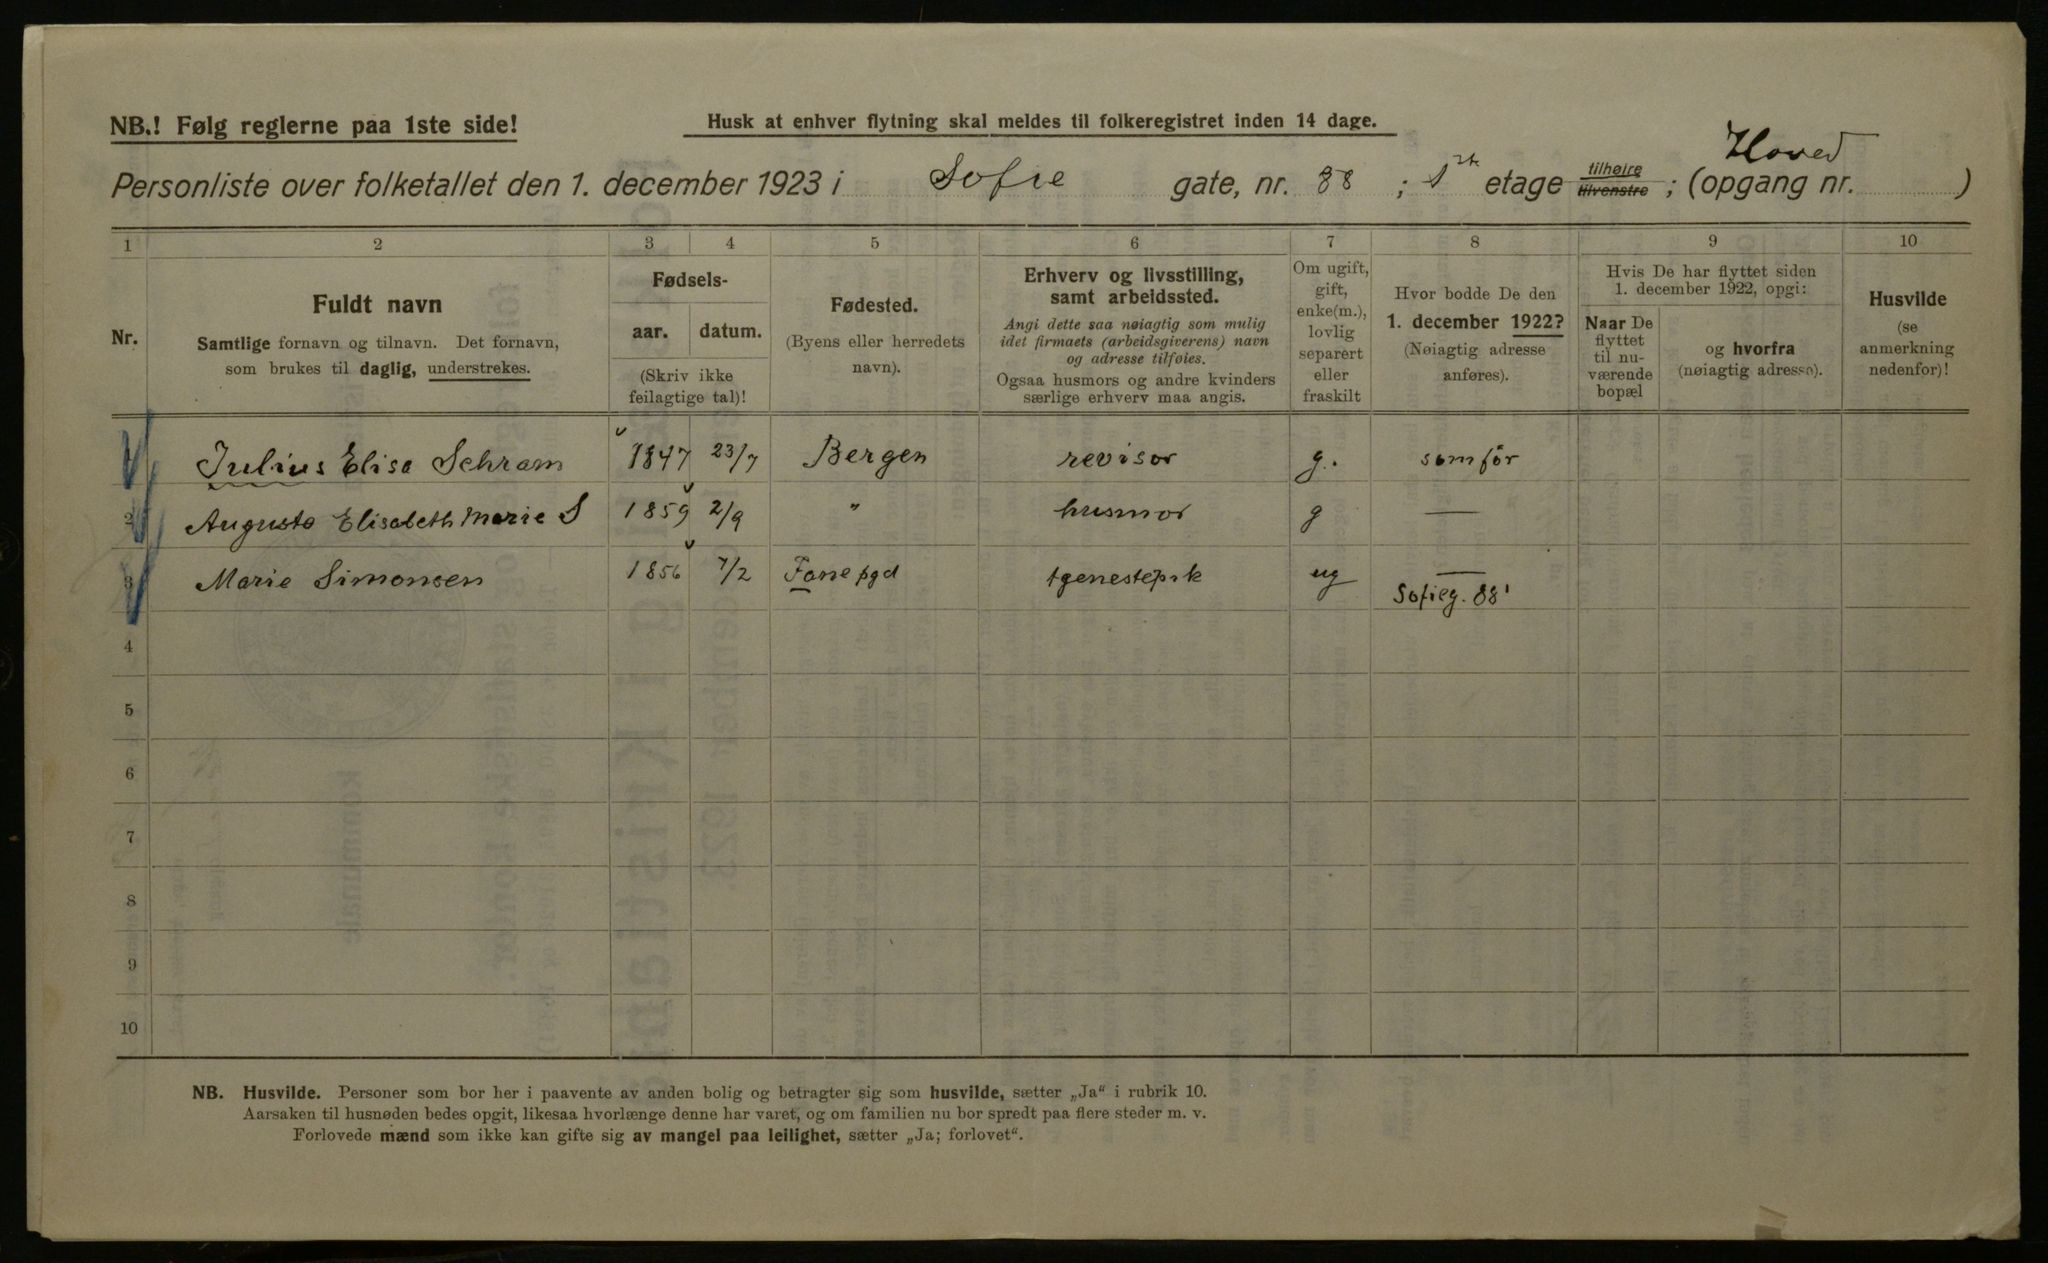 NB.! Følg reglerne paa 1ste side!
Husk at enhver flytning skal meldes til folkeregistret inden 14 dage.
Hoved
Personliste over folketallet den 1. december 1923 i Sofie gate, nr. 88 ; 1ste etage tilhøire tilvenstre ; (opgang nr. )
1 2 3 4 5 6 7 8 9 10
Nr.
Fuldt navn
Samtlige fornavn og tilnavn. Det fornavn,
som brukes til daglig, understrekes.
Fødsels-
aar. datum.
(Skriv ikke
feilagtige tal)!
Fødested.
(Byens eller herredets
navn).
Erhverv og livsstilling,
samt arbeidssted.
Angi dette saa nøiagtig som mulig
idet firmaets (arbeidsgiverens) navn
og adresse tilføies.
Ogsaa husmors og andre kvinders
særlige erhverv maa angis.
Om ugift,
gift,
enke(m.),
lovlig
separert
eller
fraskilt
Hvor bodde De den
1. december 1922?
(Nøiagtig adresse
anføres).
Hvis De har flyttet siden
1. december 1922, opgi:
Naar De
flyttet
til nu-
værende
bopæl
og hvorfra
(nøiagtig adresse).
Husvilde
(se
anmerkning
nedenfor)!
1 Julius Elisa Schram 1847 23/7 Bergen revisor g. som för
2 Augusta Elisabeth Marie S 1859 2/9 " husmor g —
3 Marie Simonsen 1856 7/2 Fane pgd tjenestepik ug —
Sofieg. 88 I
4
5
6
7
8
9
10
NB. Husvilde. Personer som bor her i paavente av anden bolig og betragter sig som husvilde, sætter „Ja“ i rubrik 10.
Aarsaken til husnøden bedes opgit, likesaa hvorlænge denne har varet, og om familien nu bor spredt paa flere steder m. v.
Forlovede mænd som ikke kan gifte sig av mangel paa leilighet, sætter „Ja; forlovet“.